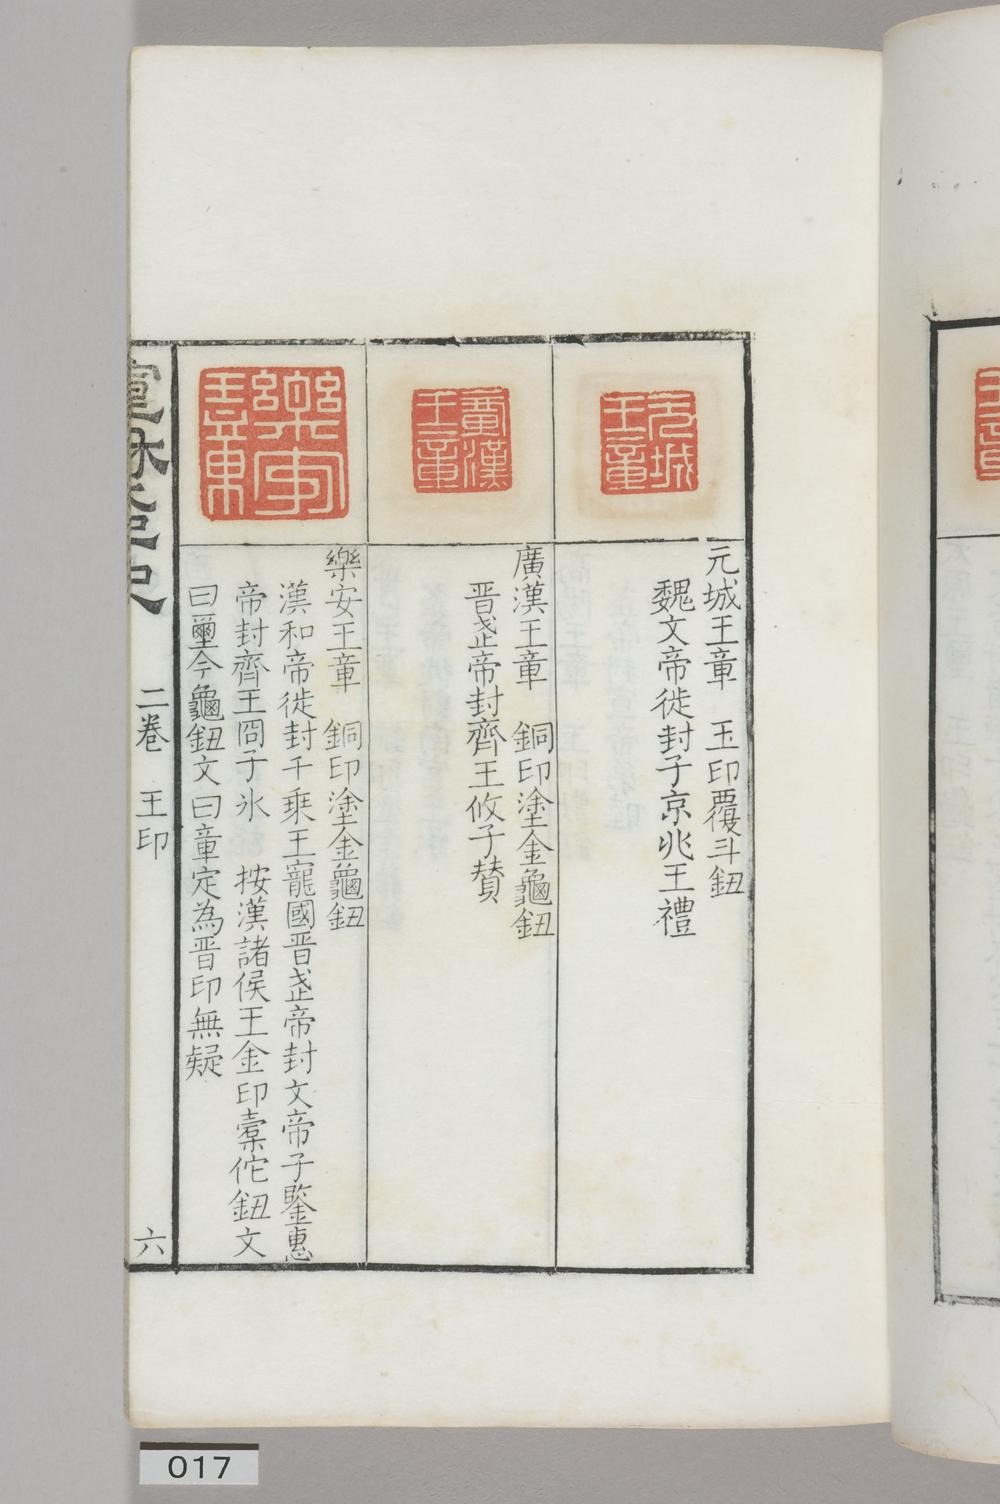 元城王章
元城王章　玉印覆斗鈕
魏文帝徙封子京兆王禮
廣漢王章
廣漢王章　銅印塗金龜鈕
晉武帝封齊王攸子贊
樂安王章　銅印塗金龜鈕
漢和帝徙封千乘王寵國晉武帝封文帝子鑒惠
帝封齊王冏子冰　按漢諸侯王金印橐佗鈕文
曰璽今龜鈕文曰章定為晉印無疑
二卷　王印
六
017